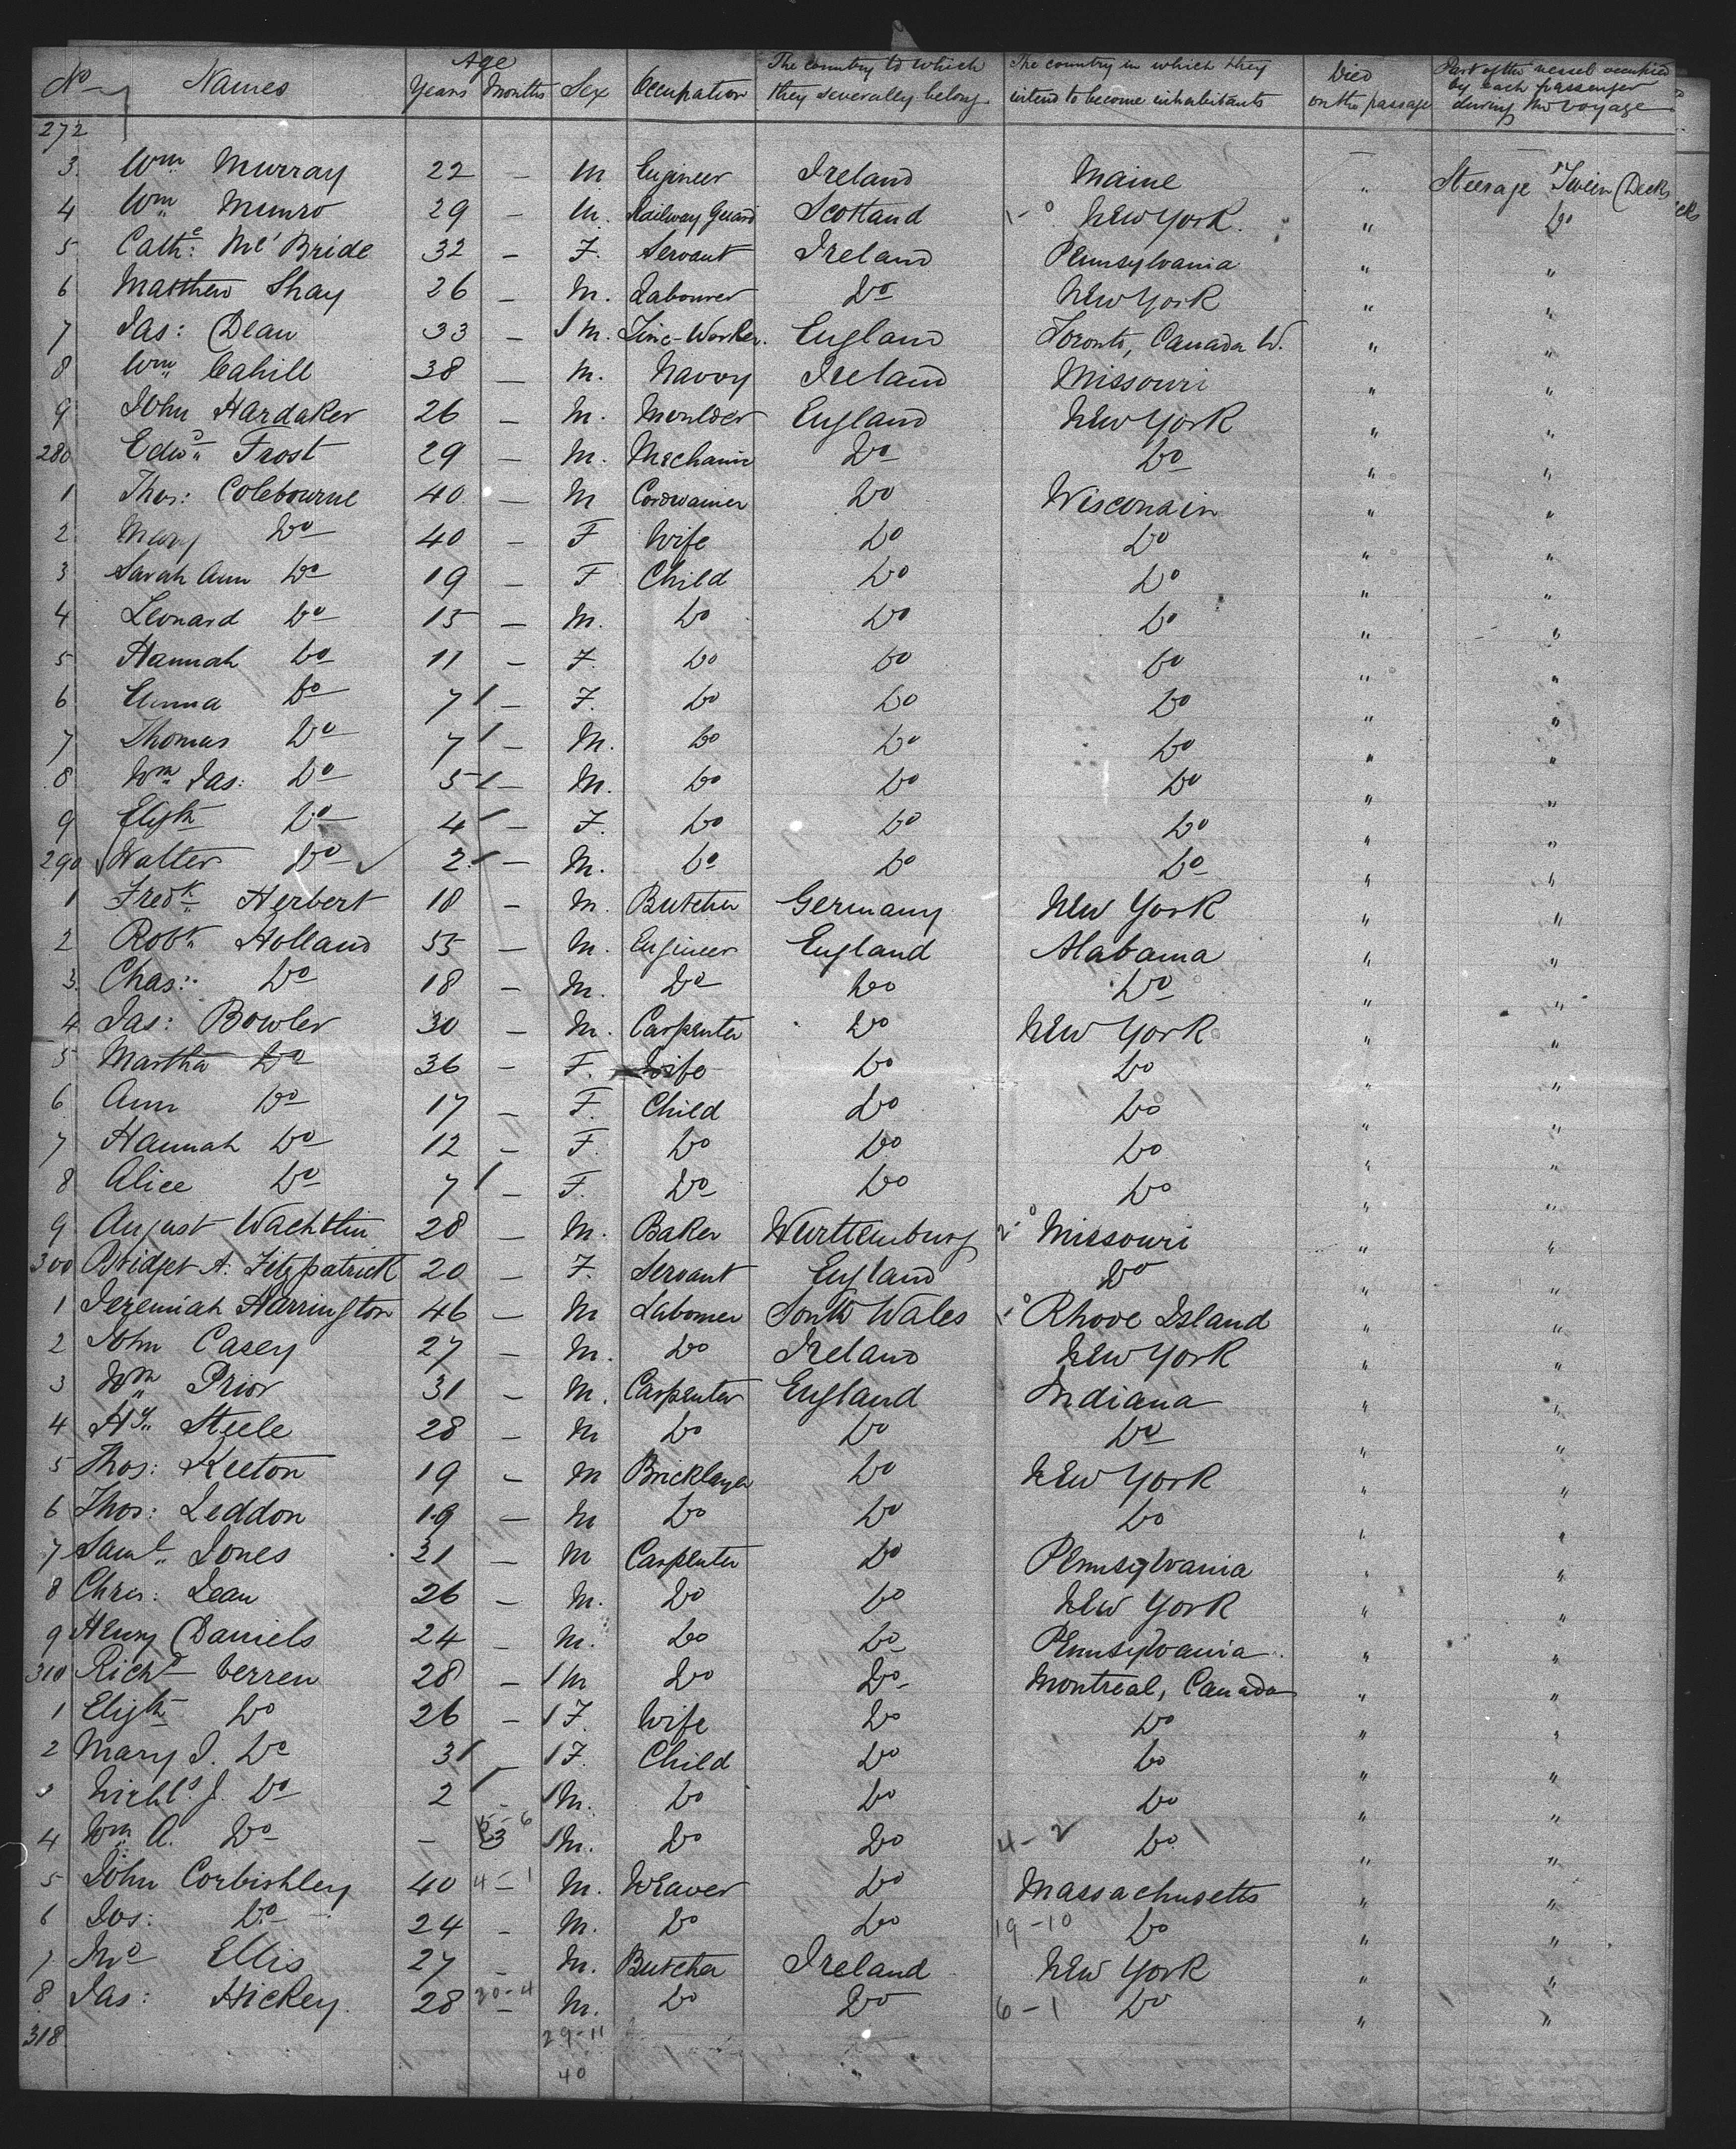 No Names Age Years Months Sex Occupation The country to which they severally belong The country in which they intend to become inhabitants Died on the passage Part of the vessel occupied by each passenger during the voyage
272
3 Wm Murray 22 – M. Engineer Ireland Maine " Steerage 'Tween Decks
4 Wm Munro 29 – M. Railway Guard Scotland New York. " Do
5 Cathe: Mc'Bride 32 – F. Servant Ireland Pennsylvania " "
6 Matthew Shay 26 – M. Labourer Do New York " "
7 Jas: Dean 33 – M. Zinc-Worker. England Toronto, Canada W. " "
8 Wm Cahill 38 – M. Navvy Ireland Missouri " "
9 John Hardaker 26 – M. Moulder England New York " "
280 Edwd Frost 29 – M. Mechanic Do Do " "
1 Thos: Colebourne 40 – M Cordwainer Do Wisconsin " "
2 Mary Do 40 – F Wife Do Do " "
3 Sarah Ann Do 19 – F Child Do Do " "
4 Leonard Do 15 – M. Do Do Do " "
5 Hannah Do 11 – F. Do Do Do " "
6 Emma Do 7 – F. Do Do Do " "
7 Thomas Do 7 – M. Do Do Do " "
8 Wm Jas: Do 5 – M. Do Do Do " "
9 Elizth Do 4 – F. Do Do Do " "
290 Walter Do 2 – M. Do Do Do " "
1 Fredk Herbert 18 – M. Butcher Germany New York " "
2 Robt Holland 55 – M. Engineer England Alabama " "
3 Chas: Do 18 – M. Do Do Do " "
4 Jas: Bowler 30 – M. Carpenter Do New York " "
5 Martha Do 36 – F. Wife Do Do " "
6 Ann Do 17 – F. Child Do Do " "
7 Hannah Do 12 – F. Do Do Do " "
8 Alice Do 7 – F. Do Do Do " "
9 August Wachtlin 28 – M. Baker Wurttemburg Missouri " "
300 Bridget A. Fitzpatrick 20 – F. Servant England Do " "
1 Jeremiah Harrington 46 – M Labourer South Wales Rhode Island " "
2 John Casey 27 – M. Do Ireland New York " "
3 Wm Prior 31 – M. Carpenter England Indiana " "
4 Hy Steele 28 – M Do Do Do " "
5 Thos: Keeton 19 – M Bricklayer Do New York " "
6 Thos: Leddon 19 – M Do Do Do " "
7 Saml Jones 21 – M Carpenter Do Pennsylvania " "
8 Chris: Dean 26 – M. Do Do New York " "
9 Henry Daniels 24 – M. Do Do Pennsylvania " "
310 Richd Verren 28 – M Do Do Montreal, Canada " "
1 Elizth Do 26 – F. Wife Do Do " "
2 Mary J. Do 3 – F. Child Do Do " "
3 Nichls J. Do 2 – M. Do Do Do " "
4 Wm A. Do – 3 M. Do Do 4-2 Do " "
5 John Corbishley 40 4-1 M. Weaver Do Massachusetts " "
6 Jos: Do 24 – M. Do Do 19-10 Do " "
7 Jno Ellis 27 – M. Butcher Ireland New York " "
8 Jas: Hickey. 28 30-4 M. Do Do 6-1 Do " "
318 29-11
40